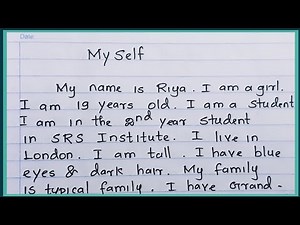 Date:
My Self
My name is Riya. I am a girl.
I am 19 years old. I am a student
I am in the 2nd year student
in SRS Institute. I live in
London. I am tall. I have blue
eyes & dark hair. My family
is typical family. I have Grand-